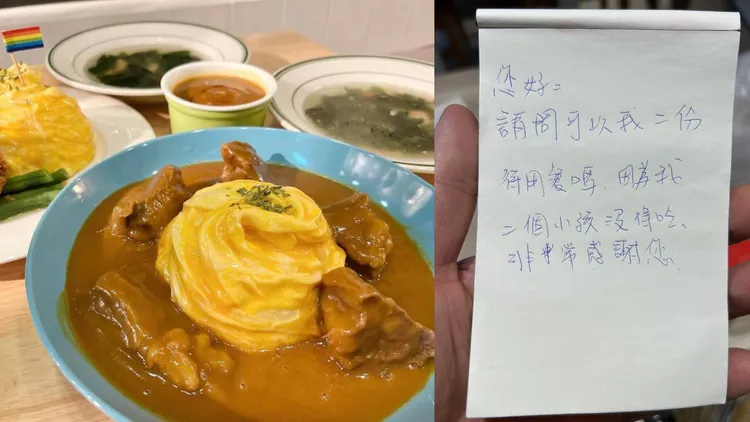 您好：
請問可以我二份
待用餐嗎. 因為我
二個小孩沒得吃、
非常感謝您.